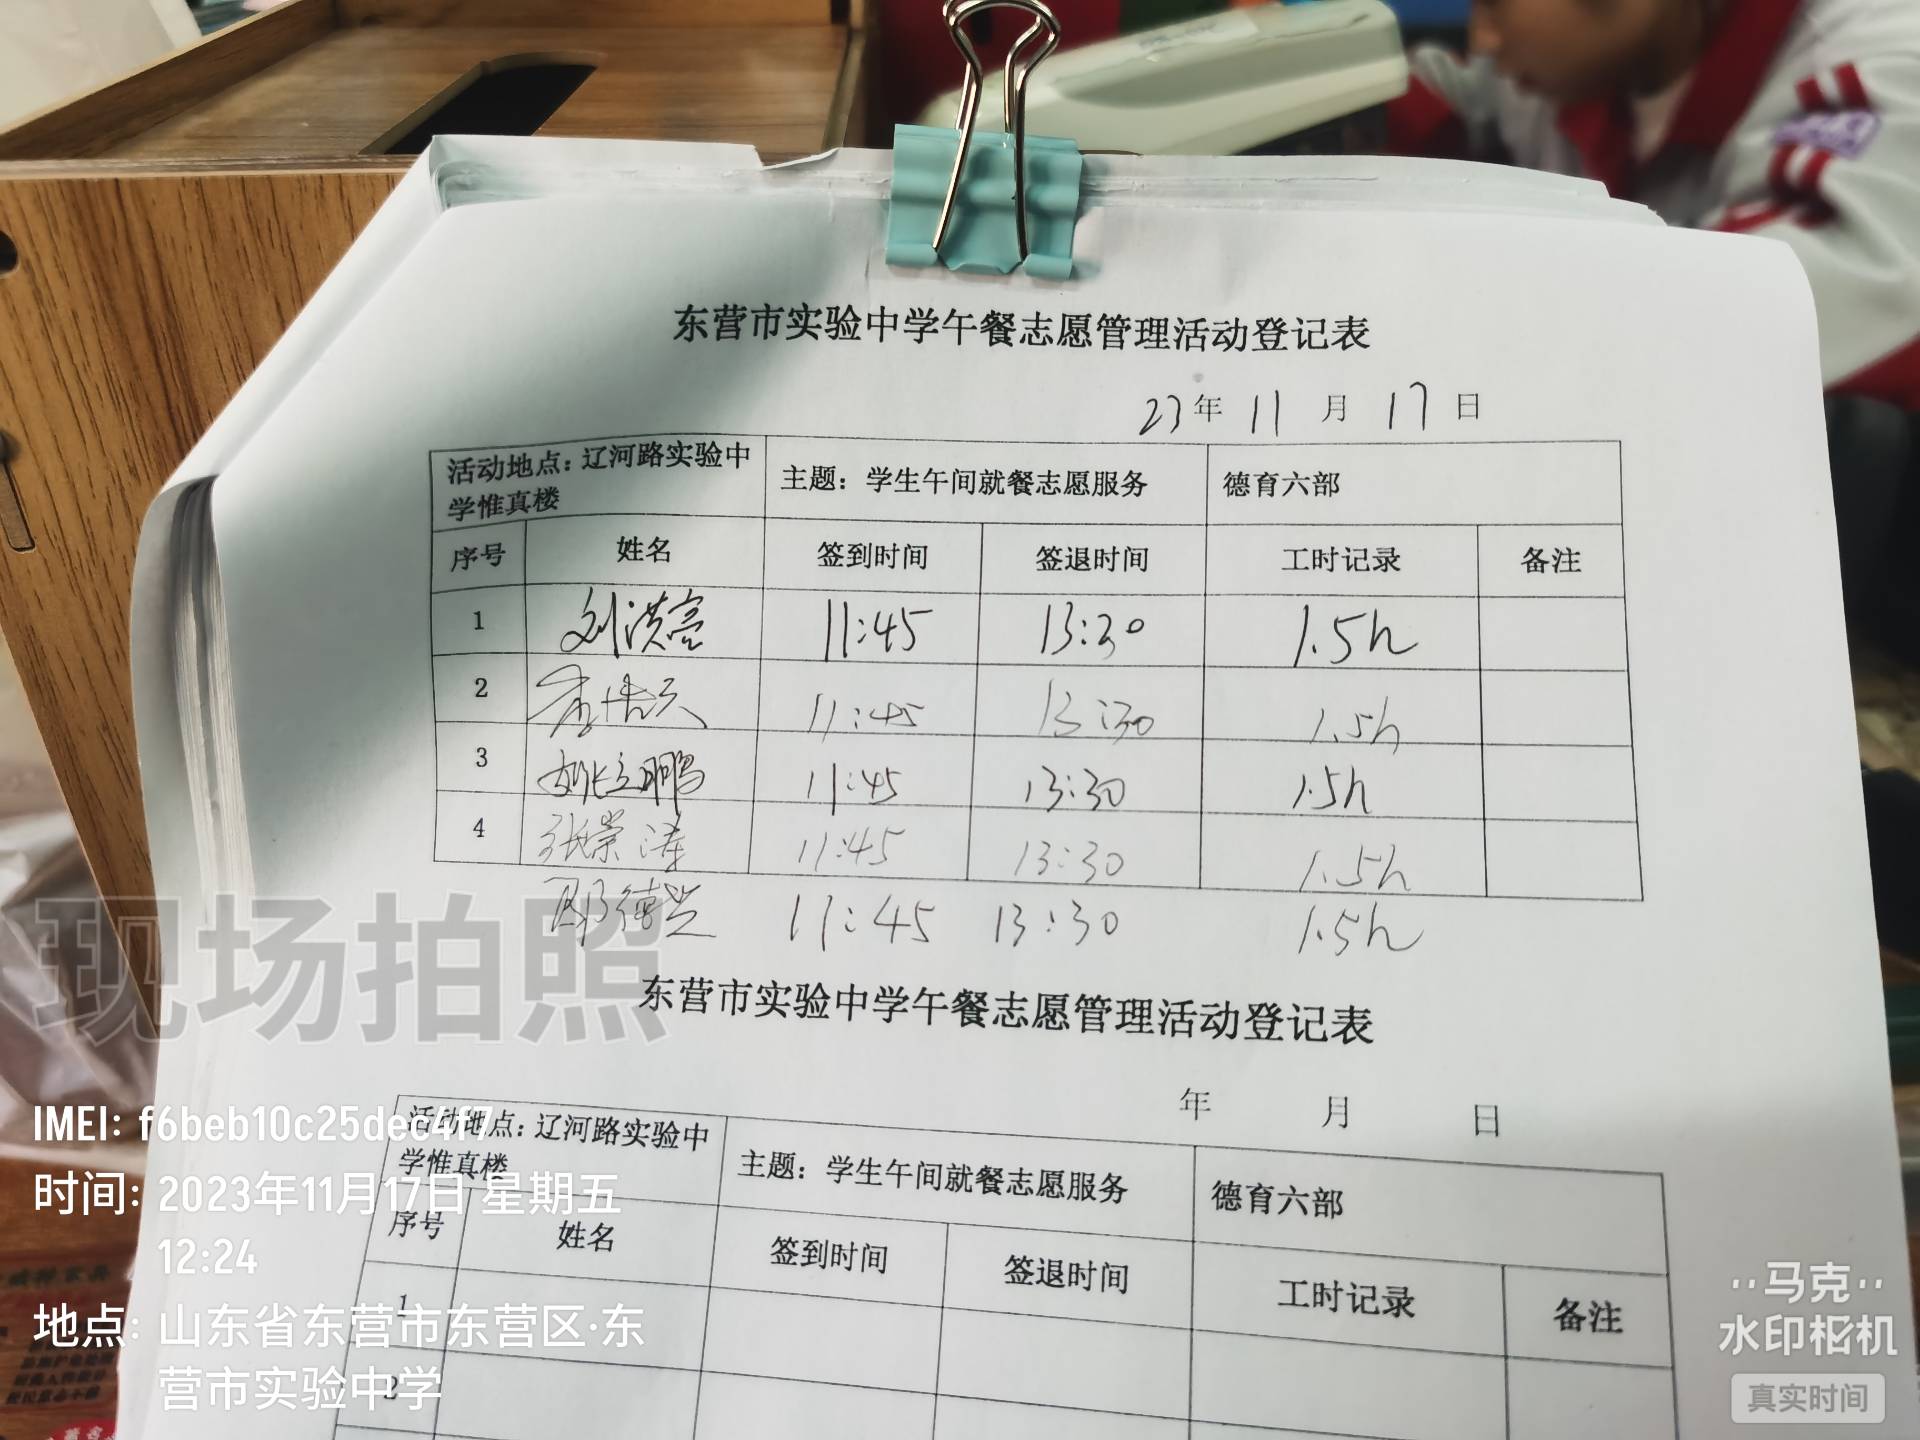 东营市实验中学午餐志愿管理活动登记表
23年 11 月 17 日
活动地点：辽河路实验中学惟真楼 主题：学生午间就餐志愿服务 德育六部
序号 姓名 签到时间 签退时间 工时记录 备注
1 刘洪亮 11:45 13:30 1.5h
2 11:45 13:30 1.5h
3 姚立鹏 11:45 13:30 1.5h
4 张崇涛 11:45 13:30 1.5h
邵德兴 11:45 13:30 1.5h
东营市实验中学午餐志愿管理活动登记表
年 月 日
活动地点：辽河路实验中学惟真楼 主题：学生午间就餐志愿服务 德育六部
序号 姓名 签到时间 签退时间 工时记录 备注
1
2
现场拍照
IMEI: f6beb10c25dec4f7
时间: 2023年11月17日 星期五
12:24
地点: 山东省东营市东营区·东
营市实验中学
马克
水印相机
真实时间